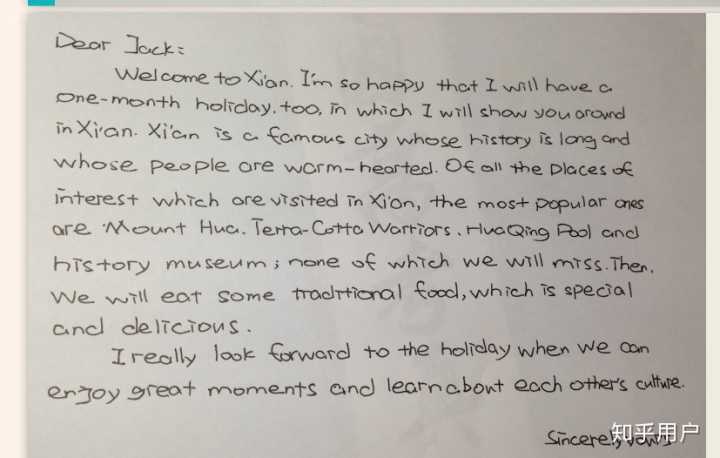 Dear Jack:
Welcome to Xi'an. I'm so happy that I will have a
one-month holiday, too, in which I will show you around
in Xi'an. Xi'an is a famous city whose history is long and
whose people are warm-hearted. Of all the places of
interest which are visited in Xi'an, the most popular ones
are Mount Hua. Terra-Cotta Warriors. HuaQing Pool and
history museum; none of which we will miss. Then,
We will eat some traditional food, which is special
and delicious.
I really look forward to the holiday when we can
enjoy great moments and learn about each other's culture.
Sincerely yours
知乎用户